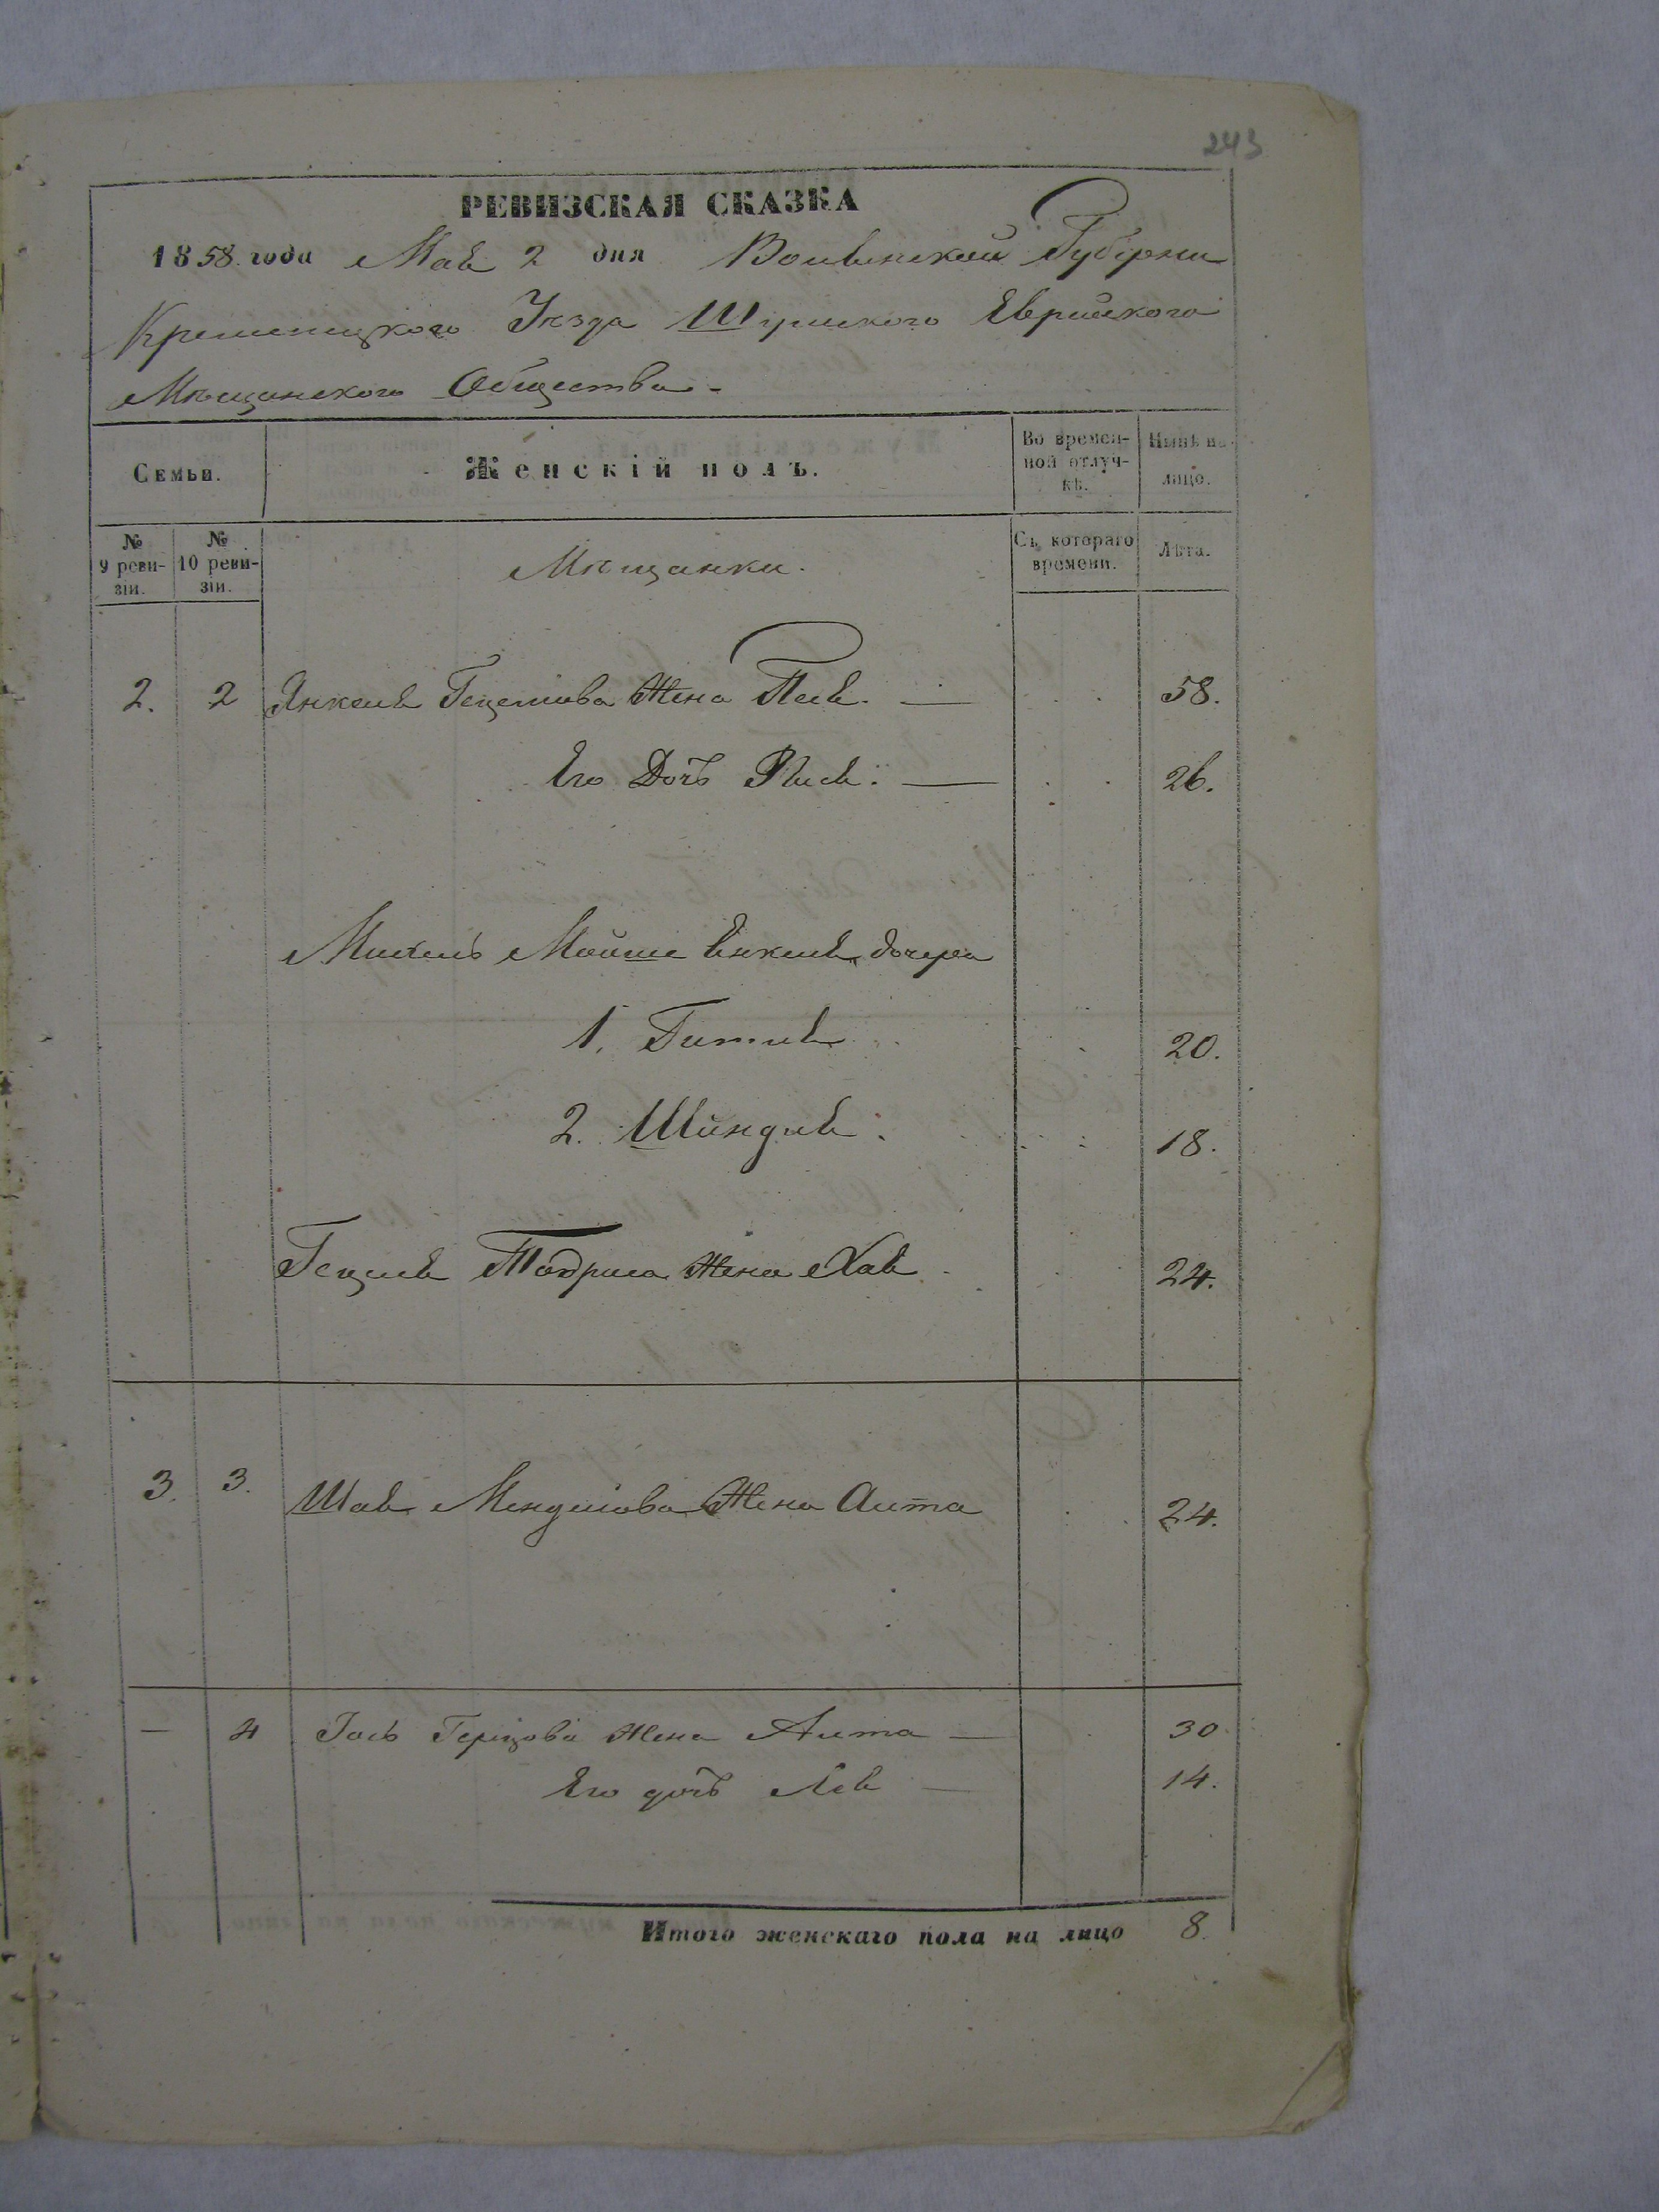 243
РЕВИЗСКАЯ СКАЗКА
1858 года Мая 2 дня Волынской Губерни
Кременецкого Уезда Шумского Еврейского
Мещанского Общества.
Семьи.
Женскій полъ.
Во времен-
ной отлуч-
кѣ.
Нынѣ на-
лицо.
№
9 реви-
зіи.
№
10 реви-
зіи.
Мещанки.
Съ котораго
времени.
Лѣта.
2. 2 Янкеля Гецелiова Жена Песя. — 58.
Его Дочь — 26.
Мошко Янкеля дочери
1. Гитля 20.
2. Шиндля. 18.
Гецеля Тодриса Жена Хая 24.
3. 3. Шая Менделiова Жена Алта 24.
— 4 Герцова Жена Алта — 30
Его дочь Лея — 14.
Итого женскаго пола на лицо 8.